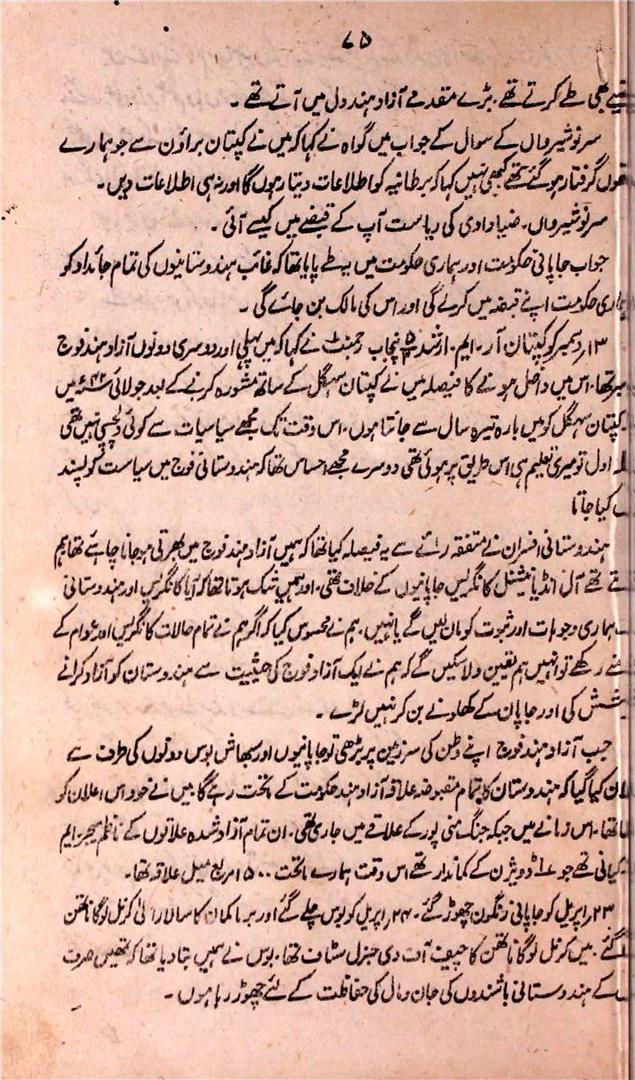 ۷۵
بھی طے کرتے تھے۔ بڑے مقدمے آزاد ہند دل میں آتے تھے۔
سر نوشیرواں کے سوال کے جواب میں گواہ نے کہا کہ میں نے کپتان براؤن سے جو ہمارے
گرفتار ہو گئے تھے کبھی نہیں کہا کہ برطانیہ کو اطلاعات دیتا رہوں گا اور نہ ہی اطلاعات دیں۔
سر نوشیرواں۔ ضیاوادی کی ریاست آپ کے قبضے میں کیسے آئی۔
جواب جاپانی حکومت اور ہماری حکومت میں یہ طے پایا تھا کہ غائب ہندوستانیوں کی تمام جائداد کو
ہماری حکومت اپنے قبضہ میں کرلے گی اور اس کی مالک بن جائے گی۔
۱۳ دسمبر کو کپتان آر۔ ایم۔ ارشد ۵ پنجاب رجمنٹ نے کہا کہ میں پہلی اور دوسری دونوں آزاد ہند فوج
تھا۔ اس میں داخل ہونے کا فیصلہ میں نے کپتان سہگل کے ساتھ مشورہ کرنے کے بعد جولائی ۴۲ء میں
کپتان سہگل کو میں بارہ تیرہ سال سے جانتا ہوں۔ اس وقت تک مجھے سیاسیات سے کوئی دلچسپی نہیں تھی
اول تو میری تعلیم ہی اس طریق پر ہوئی تھی دوسرے مجھے احساس تھا کہ ہندوستانی فوج میں سیاست کو پسند
کیا جاتا
ہندوستانی افسران نے متفقہ رائے سے یہ فیصلہ کیا تھا کہ ہمیں آزاد ہند فوج میں بھرتی ہو جانا چاہئے تھا ہم
تھے آل انڈیا نیشنل کانگریس جاپانیوں کے خلاف تھی۔ اور ہمیں شک ہوتا تھا کہ آیا کانگریس اور ہندوستانی
ہماری وجوہات اور ثبوت کو مان لیں گے یا نہیں۔ ہم نے محسوس کیا کہ اگر ہم نے تمام حالات کانگریس اور عوام کے
رکھے تو انہیں ہم یقین دلا سکیں گے کہ ہم نے ایک آزاد فوج کی حیثیت سے ہندوستان کو آزاد کرانے
کی اور جاپان کے کھلونے بن کر نہیں لڑے۔
جب آزاد ہند فوج اپنے وطن کی سرزمین پر بڑھی تو جاپانیوں اور سبھاش بوس دونوں کی طرف سے
کیا گیا کہ ہندوستان کا تمام مقبوضہ علاقہ آزاد ہند حکومت کے ماتحت رہے گا۔ میں نے خود اس اعلان کو
تھا۔ اس زمانے میں جبکہ جنگ منی پور کے علاقے میں جاری تھی۔ ان تمام آزاد شدہ علاقوں کے ناظم میجر۔ ایم
کیانی تھے جو ۱ ڈویژن کے کماندار تھے اس وقت ہمارے ماتحت ۱۵۰۰ مربع میل علاقہ تھا۔
۲۳ اپریل کو جاپانی رنگون چھوڑ گئے۔ ۲۴ اپریل کو بوس چلے گئے اور برما کمان کا سالار اعلیٰ کرنل لوگاناتھن
گئے۔ میں کرنل لوگاناتھن کا چیف آف دی جنرل سٹاف تھا۔ بوس نے ہمیں بتا دیا تھا کہ تمہیں صرف
کے ہندوستانی باشندوں کی جان و مال کی حفاظت کے لئے چھوڑ رہا ہوں۔